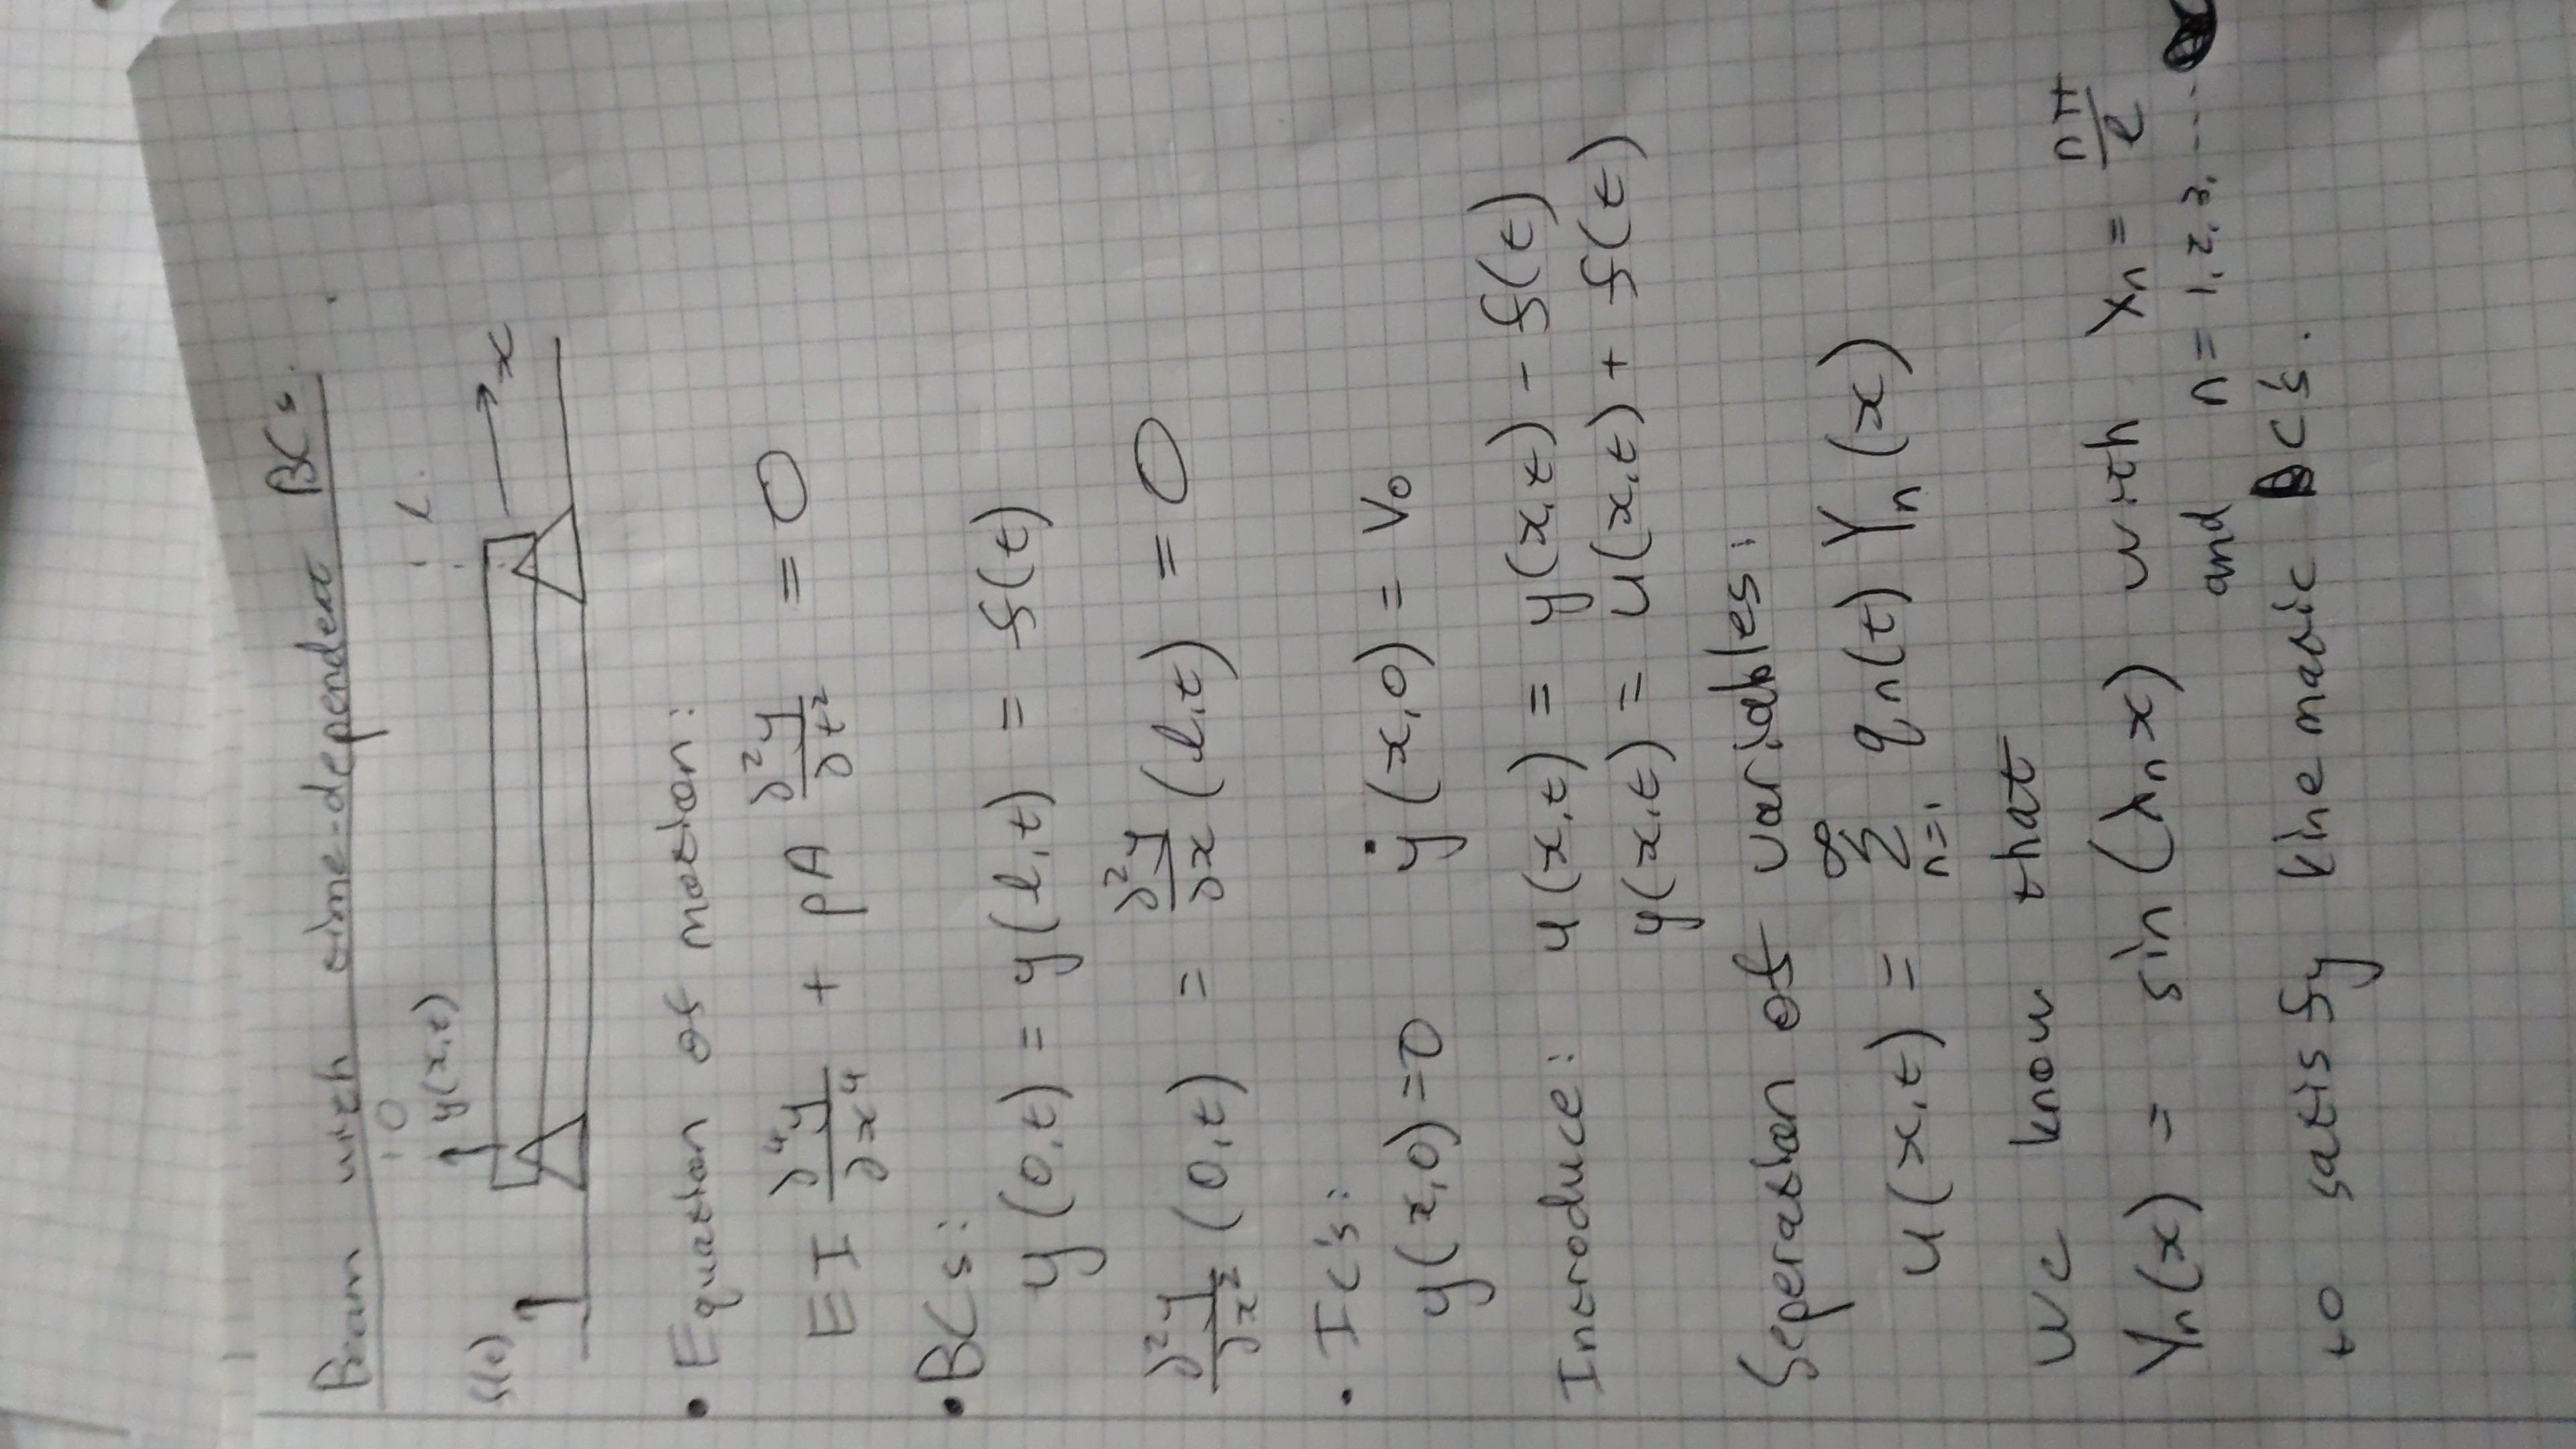 Beam with time-dependent BCs.
0
l.
y(x,t)
f(t)
x
• Equation of motion:
EI ∂⁴y/∂x⁴ + ρA ∂²y/∂t² = 0
• BCs:
y(0,t) = y(l,t) = f(t)
∂²y/∂x² (0,t) = ∂²y/∂x (l,t) = 0
• IC's:
y(x,0)=0 ẏ(x,0) = V₀
Introduce: u(x,t) = y(x,t) - f(t)
y(x,t) = u(x,t) + f(t)
Seperation of variables:
u(x,t) = ∑_{n=1}^{∞} qₙ(t) Yₙ(x)
We know that
Yₙ(x) = sin(λₙx) with λₙ = nπ/l
and n = 1, 2, 3, ...
to satisfy kinematic BC's.